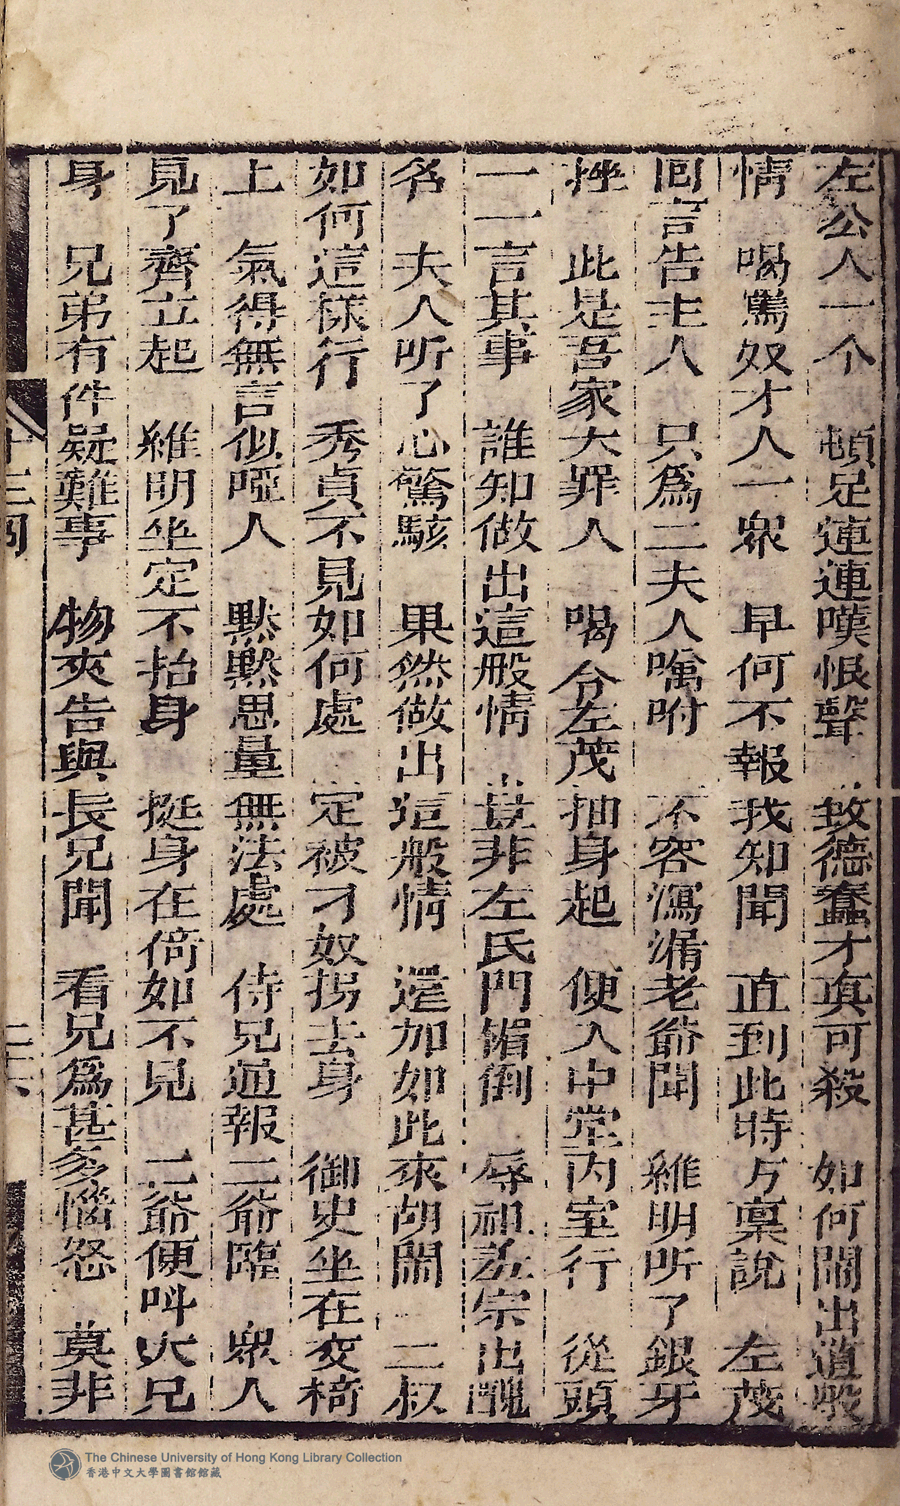 左公人一个　頓足連連嘆恨聲　致德蠢才真可殺　如何鬧出這般
情　喝罵奴才人一眾　早何不報我知聞　直到此時方稟說　左茂
回言告主人　只為二夫人囑咐　不容瀉漏老爺聞　維明听了銀牙
挫　此是吾家大罪人　喝令左茂抽身起　便入中堂內室行　從頭
一一言其事　誰知做出這般情　豈非左氏門楣倒　辱祖羞宗出醜
名　夫人听了心驚駭　果然做出這般情　還加如此來胡鬧　二叔
如何這樣行　秀貞不見如何處　定被刁奴拐去身　御史坐在交椅
上　氣得無言似啞人　默默思量無法處　侍兒通報二爺臨　眾人
見了齊立起　維明坐定不抬身　挺身在倚如不見　二爺便叫大兄
身　兄弟有件疑難事　物來告與長兄聞　看兄為甚多惱怒　莫非
十三回
二十六
The Chinese University of Hong Kong Library Collection
香港中文大學圖書館館藏